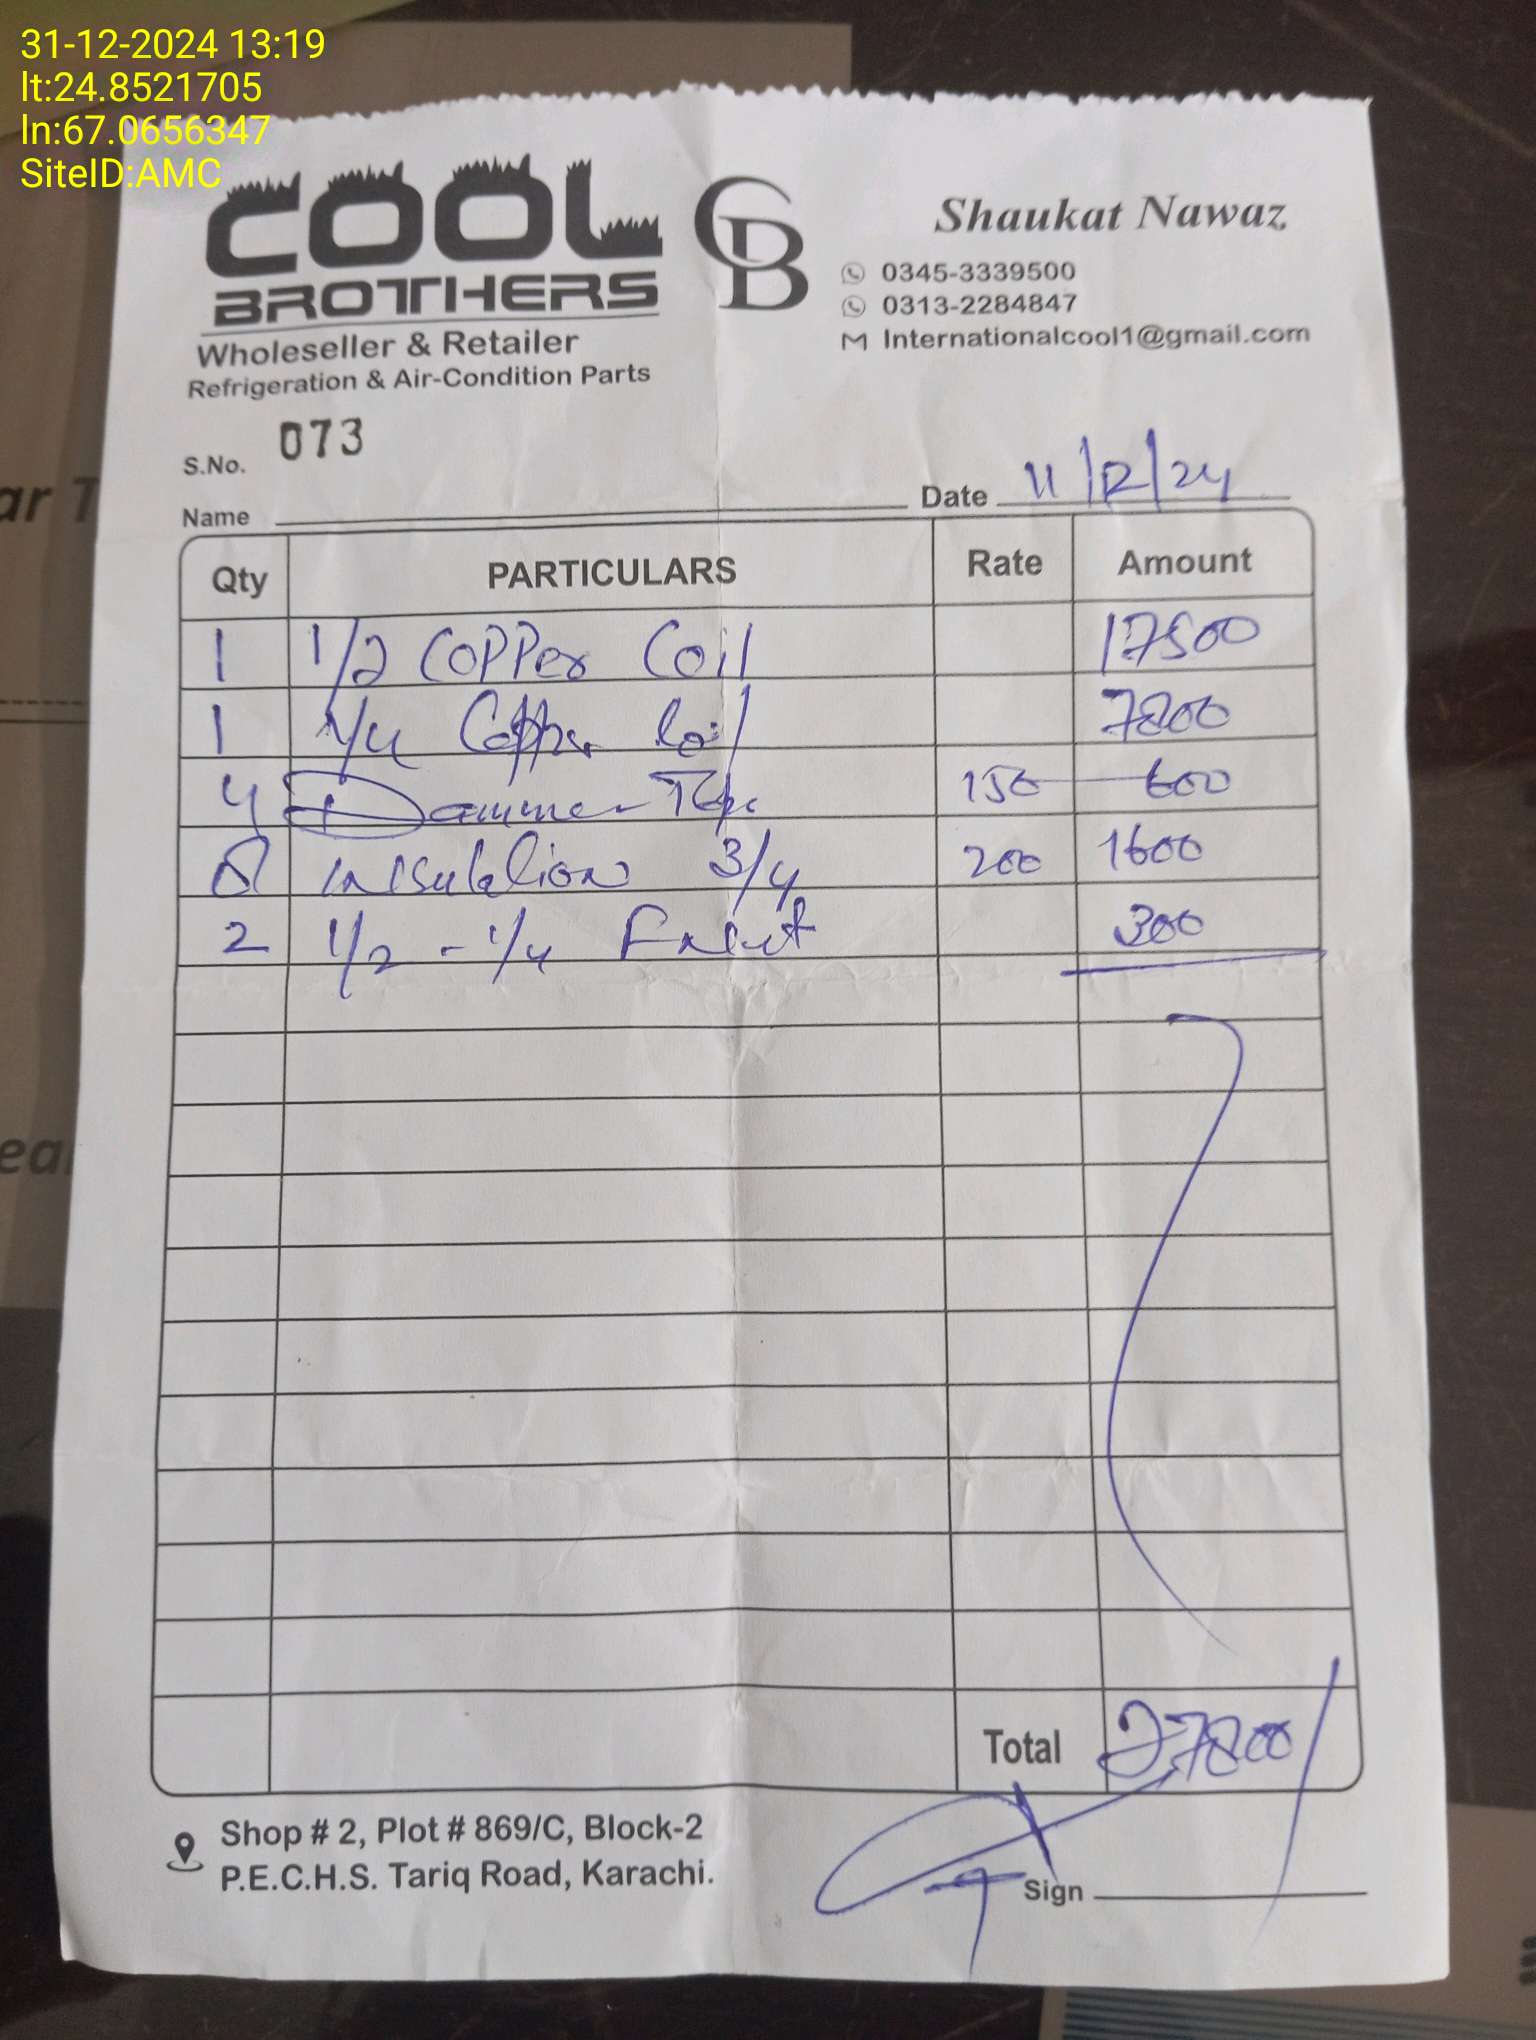 31-12-2024 13:19
lt:24.8521705
ln:67.0656347
SiteID:AMC
COOL BROTHERS CB
Wholeseller & Retailer
Refrigeration & Air-Condition Parts
Shaukat Nawaz
0345-3339500
0313-2284847
Internationalcool1@gmail.com
S.No. 073
Name Date 11/12/24
Qty PARTICULARS Rate Amount
1 1/2 Copper Coil 17500
1 1/4 Copper Coil 7800
4 Dammer Tape 150 600
8 insulation 3/4 200 1600
2 1/2 - 1/4 300
Total 27800/
Shop # 2, Plot # 869/C, Block-2
P.E.C.H.S. Tariq Road, Karachi.
Sign
ar T
ea